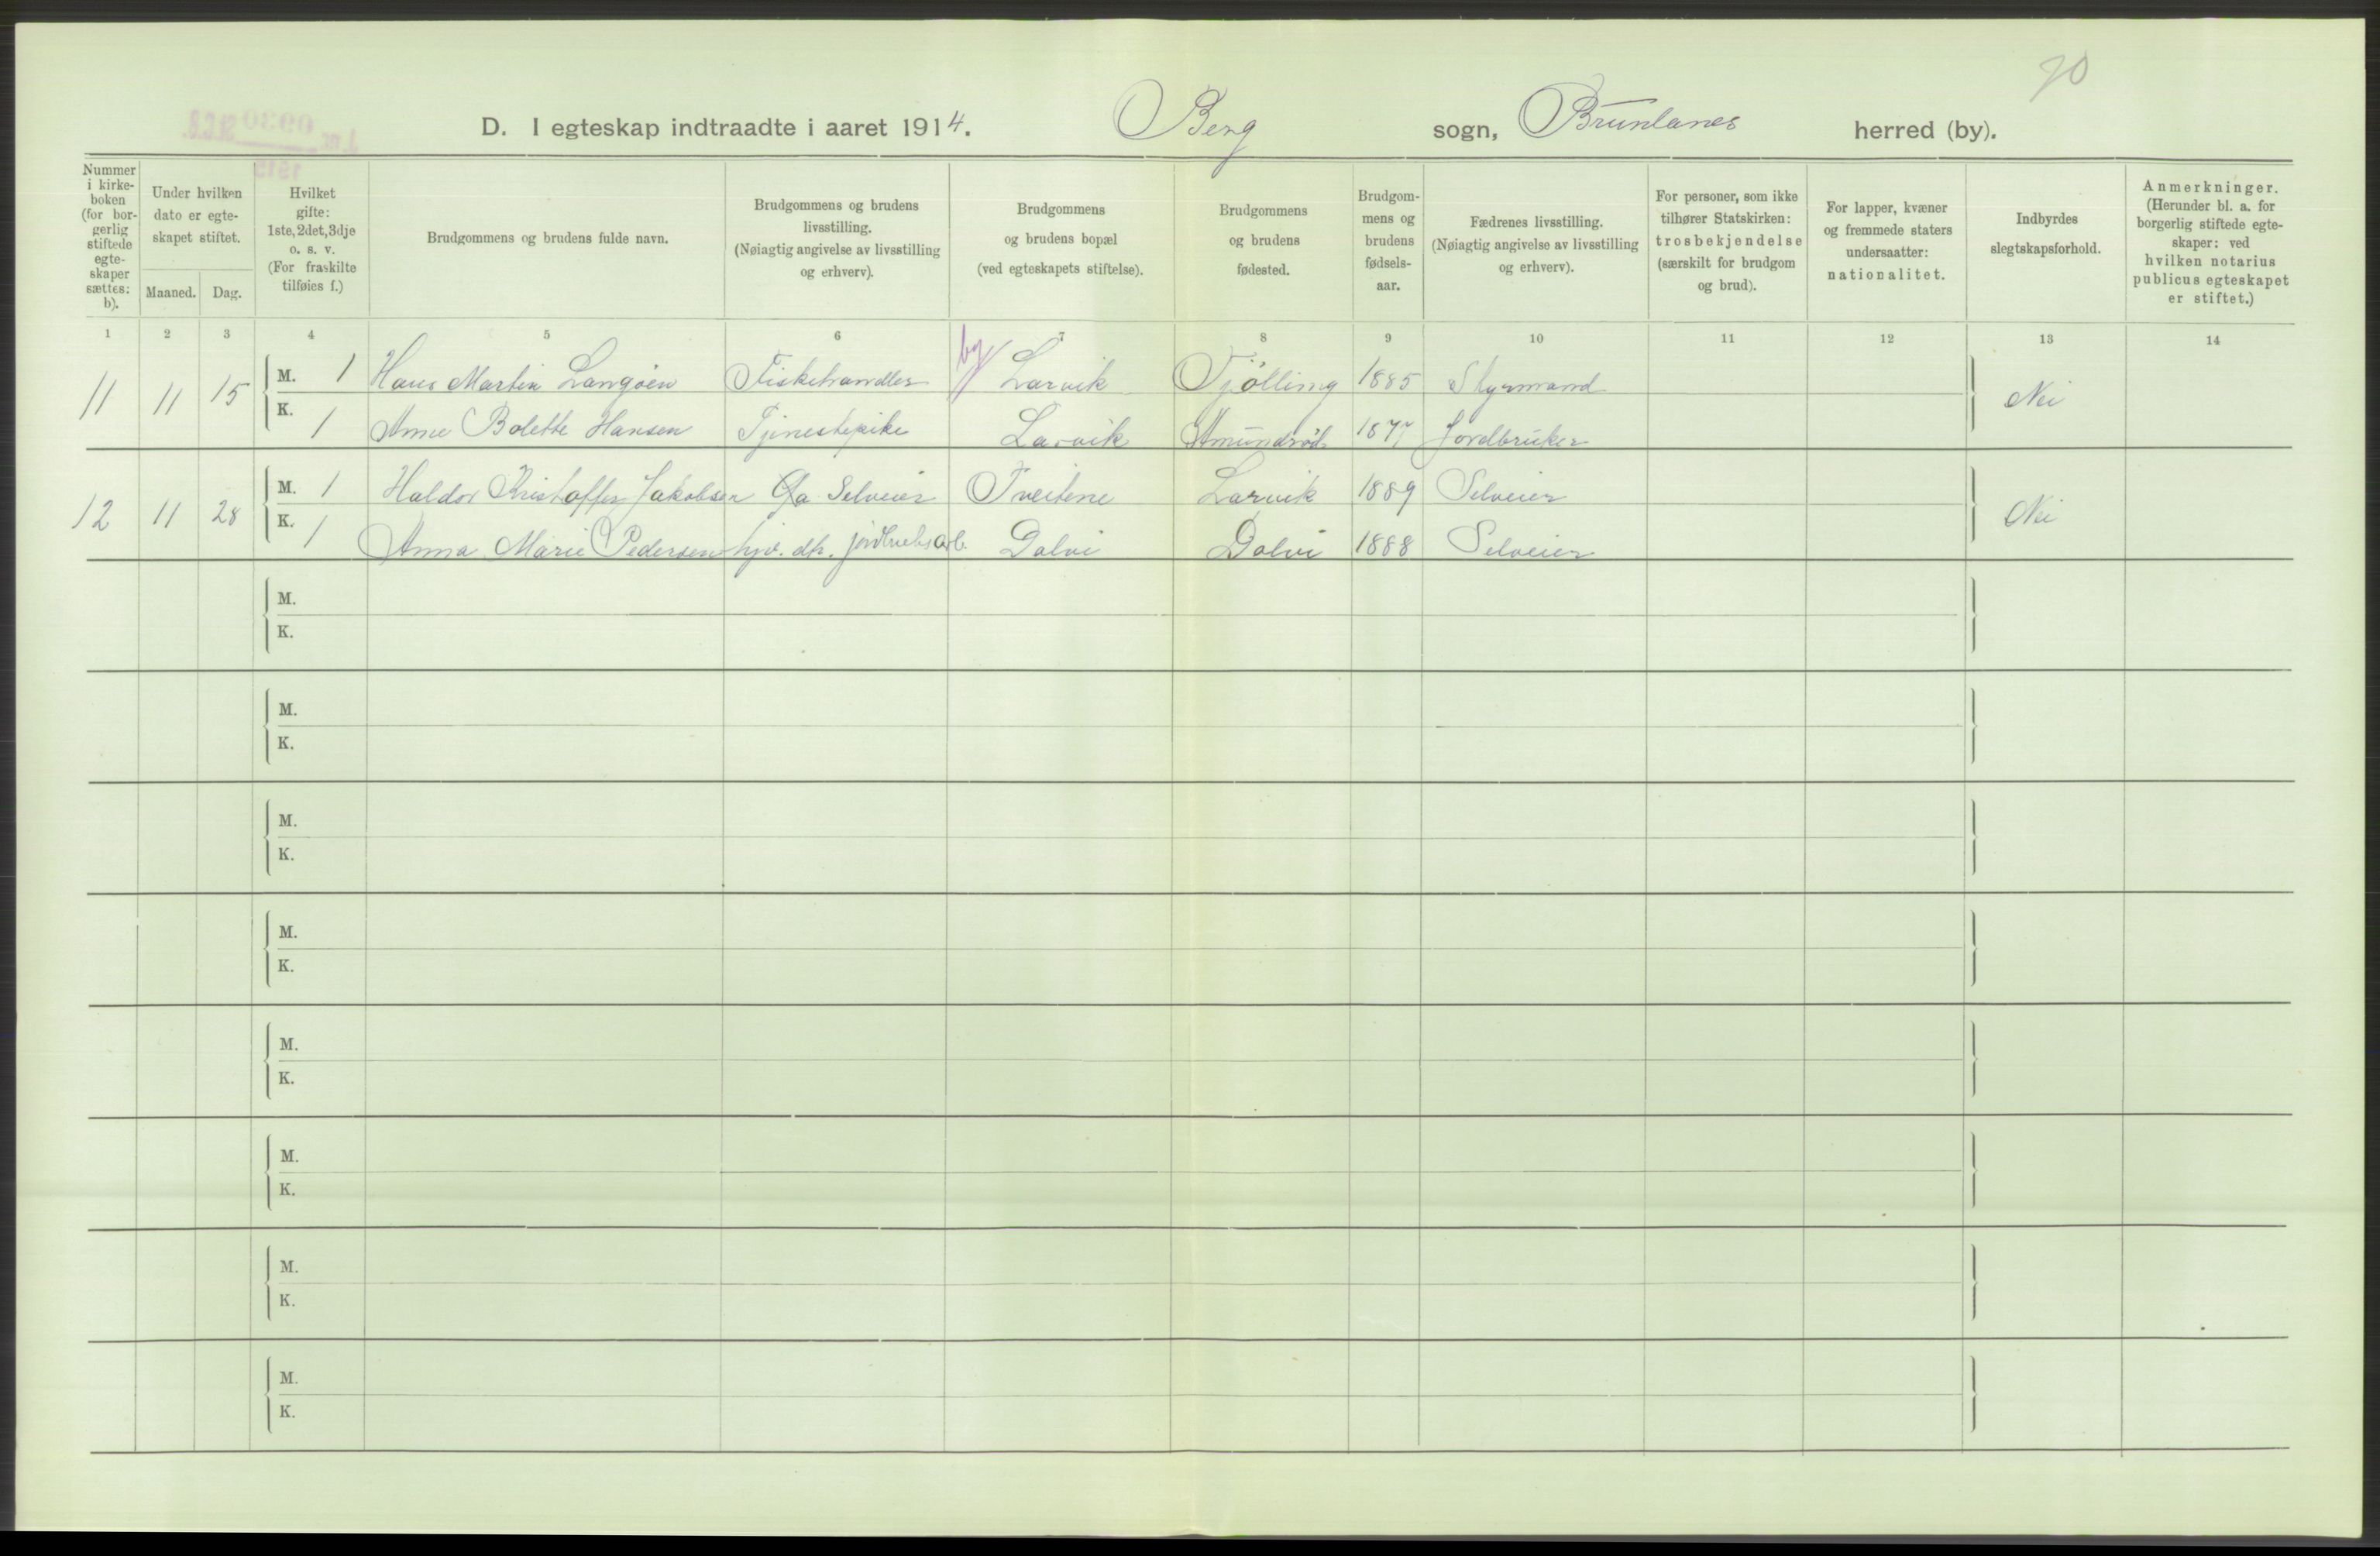 70
D. I egteskap indtraadte i aaret 1914. Berg sogn, Brunlanes herred (by).
Nummer i kirke- boken (for bor- gerlig stiftede egte- skaper sættes: b).
Under hvilken dato er egte- skapet stiftet.
Maaned. Dag.
Hvilket gifte: 1ste, 2det, 3dje o. s. v. (For fraskilte tilføies f.)
Brudgommens og brudens fulde navn.
Brudgommens og brudens livsstilling. (Nøiagtig angivelse av livsstilling og erhverv).
Brudgommens og brudens bopæl (ved egteskapets stiftelse).
Brudgommens og brudens fødested.
Brudgom- mens og brudens fødsels- aar.
Fædrenes livsstilling. (Nøiagtig angivelse av livsstilling og erhverv).
For personer, som ikke tilhører Statskirken: trosbekjendelse (særskilt for brudgom og brud).
For lapper, kvæner og fremmede staters undersaatter: nationalitet.
Indbyrdes slegtskapsforhold.
Anmerkninger. (Herunder bl. a. for borgerlig stiftede egte- skaper: ved hvilken notarius publicus egteskapet er stiftet.)
1 2 3 4 5 6 7 8 9 10 11 12 13 14
11 11 15 M. 1 Hans Martin Langøen Fiskehandler by Larvik Tjølling 1885 Styrmand Nei
K. 1 Anne Bolette Hansen Tjenestepike Larvik Amundrød 1877 Jordbruker
12 11 28 M. 1 Haldor Kristoffer Jakobsen Ga Selveier Tveitene Larvik 1889 Selveier Nei
K. 1 Anna Marie Pedersen hjv. dtr. jordbruksarb. Dolvi Dolvi 1888 Selveier
M.
K.
M.
K.
M.
K.
M.
K.
M.
K.
M.
K.
M.
K.
M.
K.